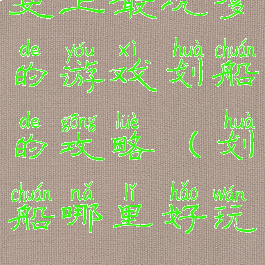 史上最坑爹
de yóu xì huà chuán
的游戏划船
de gōng lüè huà
的攻略(划
chuán nǎ lǐ hǎo wán
船哪里好玩